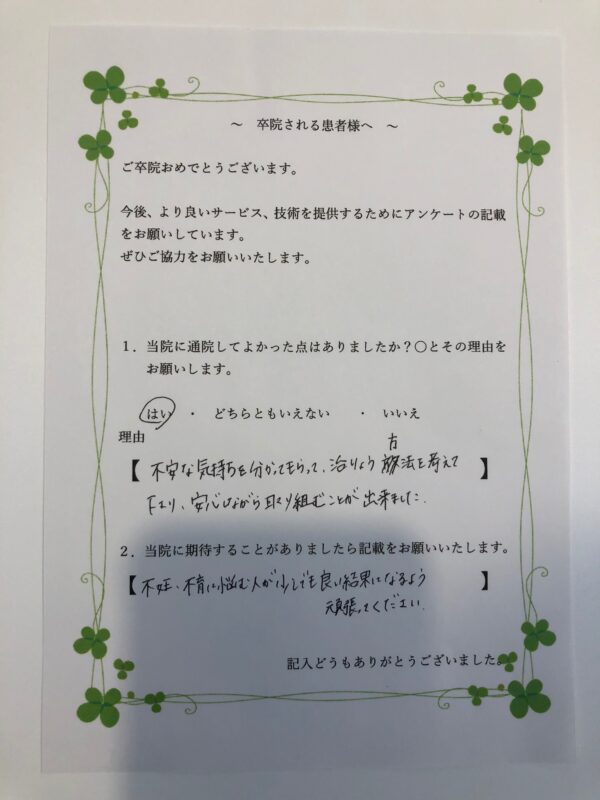 ～　卒院される患者様へ　～
ご卒院おめでとうございます。
今後、より良いサービス、技術を提供するためにアンケートの記載
をお願いしています。
ぜひご協力をお願いいたします。
１．当院に通院してよかった点はありましたか？〇とその理由を
お願いします。
はい　・　どちらともいえない　・　いいえ
理由
【不安な気持ちを分かってもらって、治りょう方法を考えて】
下さり、安心しながら取り組むことが出来ました。
２．当院に期待することがありましたら記載をお願いいたします。
【不妊、不育に悩む人が少しでも良い結果になるよう】
頑張ってください。
記入どうもありがとうございました。